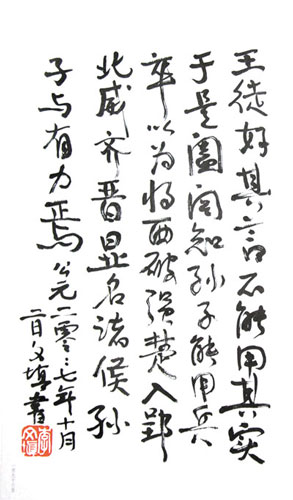 王徒好其言不能用其实
于是阖闾知孙子能用兵
卒以为将西破强楚入郢
北威齐晋显名诸侯孙
子与有力焉公元二零零七年十月
二日文书